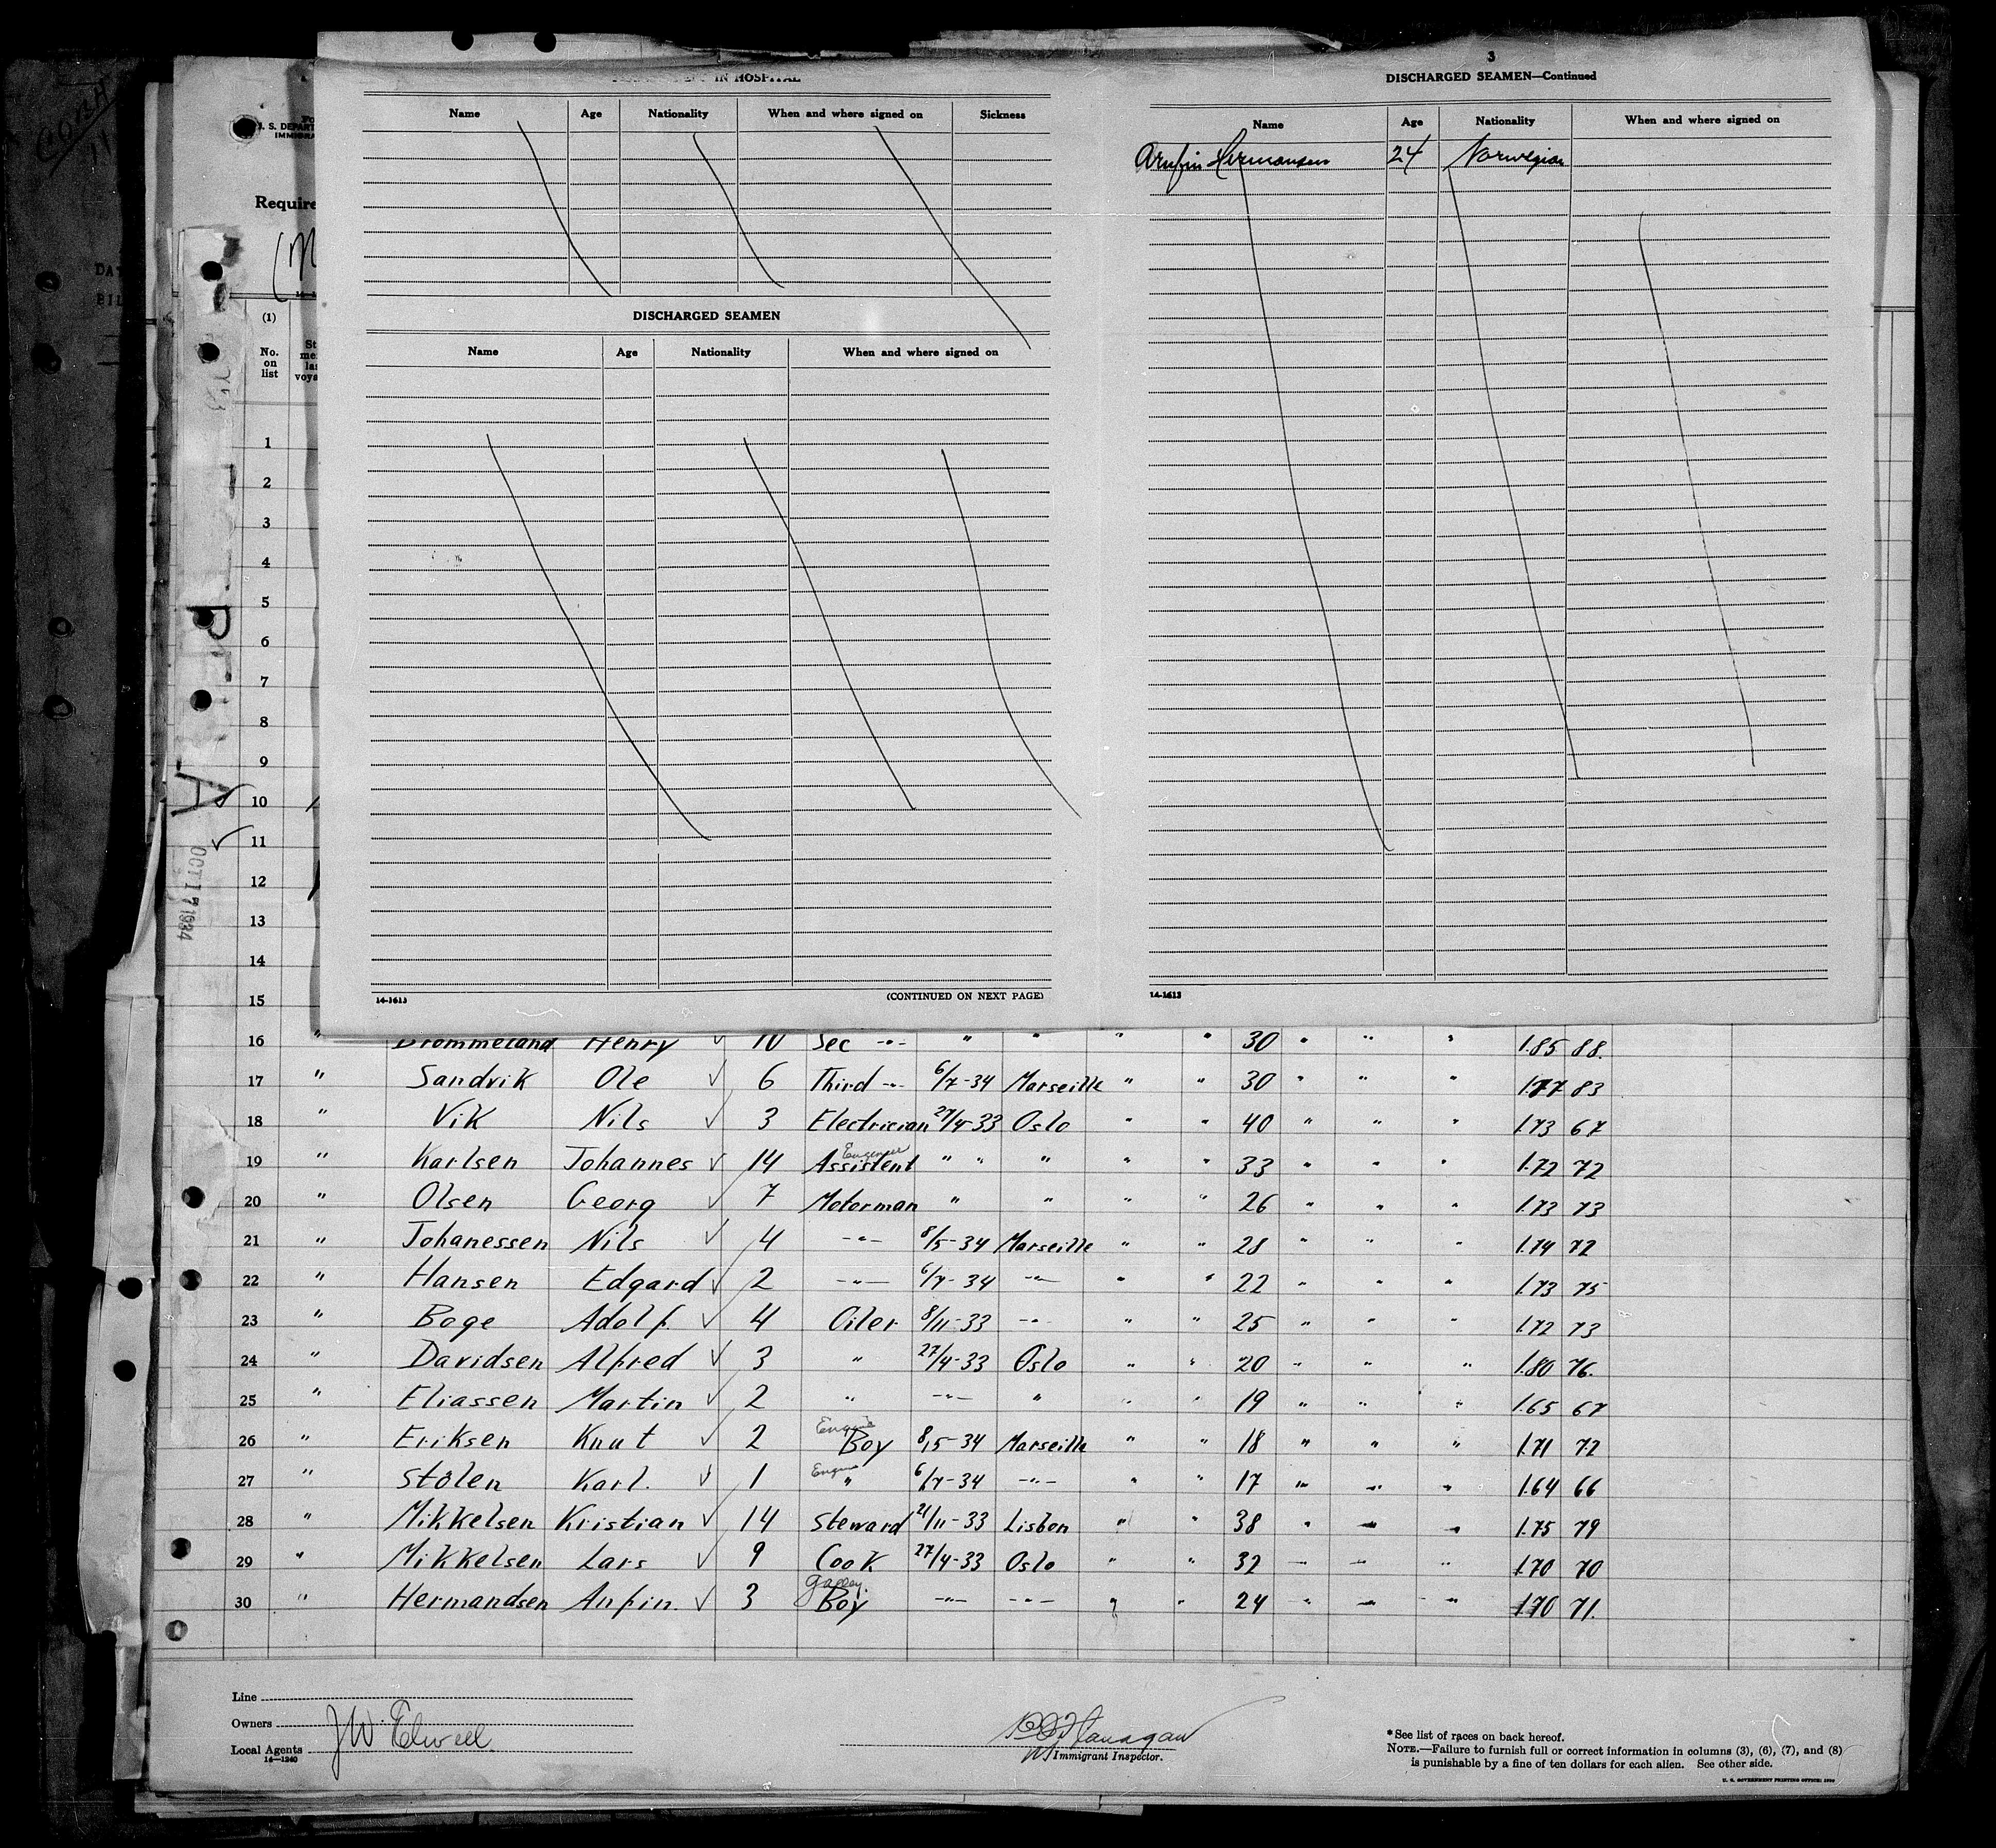 IN HOSPITAL
Name Age Nationality When and where signed on Sickness
DISCHARGED SEAMEN
Name Age Nationality When and where signed on
14-1613 (CONTINUED ON NEXT PAGE)
3
DISCHARGED SEAMEN—Continued
Name Age Nationality When and where signed on
Arnfin Hermansen 24 Norwegian
14-1613
U. S. DEPART
IMMIGRA
Require
(M
(1)
No. on list
1
2
3
4
5
6
7
8
9
10
11
12
13
14
15
OCT 17 1934
16 " Drommeland Henry ✓ 10 Sec -"- " " " " 30 " " " 1.85 88.
17 " Sandvik Ole ✓ 6 Third -"- 6/7-34 Marseille " " 30 " " " 1.77 83
18 " Vik Nils ✓ 3 Electrician 27/4-33 Oslo " " 40 " " " 1.73 67
19 " Karlsen Johannes ✓ 14 Assistent " " " " " 33 " " " 1.72 72
20 " Olsen Georg ✓ 7 Motorman " " " " 26 " " " 1.73 73
21 " Johanessen Nils ✓ 4 -"- 8/5-34 Marseille " " 28 " " " 1.74 72
22 " Hansen Edgard ✓ 2 -"- 6/7-34 -"- " " 22 " " " 1.73 75
23 " Boge Adolf. ✓ 4 Oiler 8/11-33 -"- " " 25 " " " 1.72 73
24 " Davidsen Alfred ✓ 3 " 27/4-33 Oslo " " 20 " " " 1.80 76.
25 " Eliassen Martin ✓ 2 " -"- " " " 19 " " " 1.65 67
26 " Eriksen Knut ✓ 2 Engine Boy 8/5-34 Marseille " " 18 " " " 1.71 72
27 " Stölen Karl. ✓ 1 Engine " 6/7-34 -"- " " 17 " " " 1.64 66
28 " Mikkelsen Kristian ✓ 14 Steward 21/11-33 Lisbon " " 38 " " " 1.75 79
29 " Mikkelsen Lars ✓ 9 Cook 27/4-33 Oslo " " 32 " " " 1.70 70
30 " Hermandsen Anfin. ✓ 3 Galley. Boy -"- -"- " " 24 " " " 1.70 71.
Line
Owners
Local Agents J W Elwell
14—1240
Immigrant Inspector.
*See list of races on back hereof.
NOTE.—Failure to furnish full or correct information in columns (3), (6), (7), and (8)
is punishable by a fine of ten dollars for each alien. See other side.